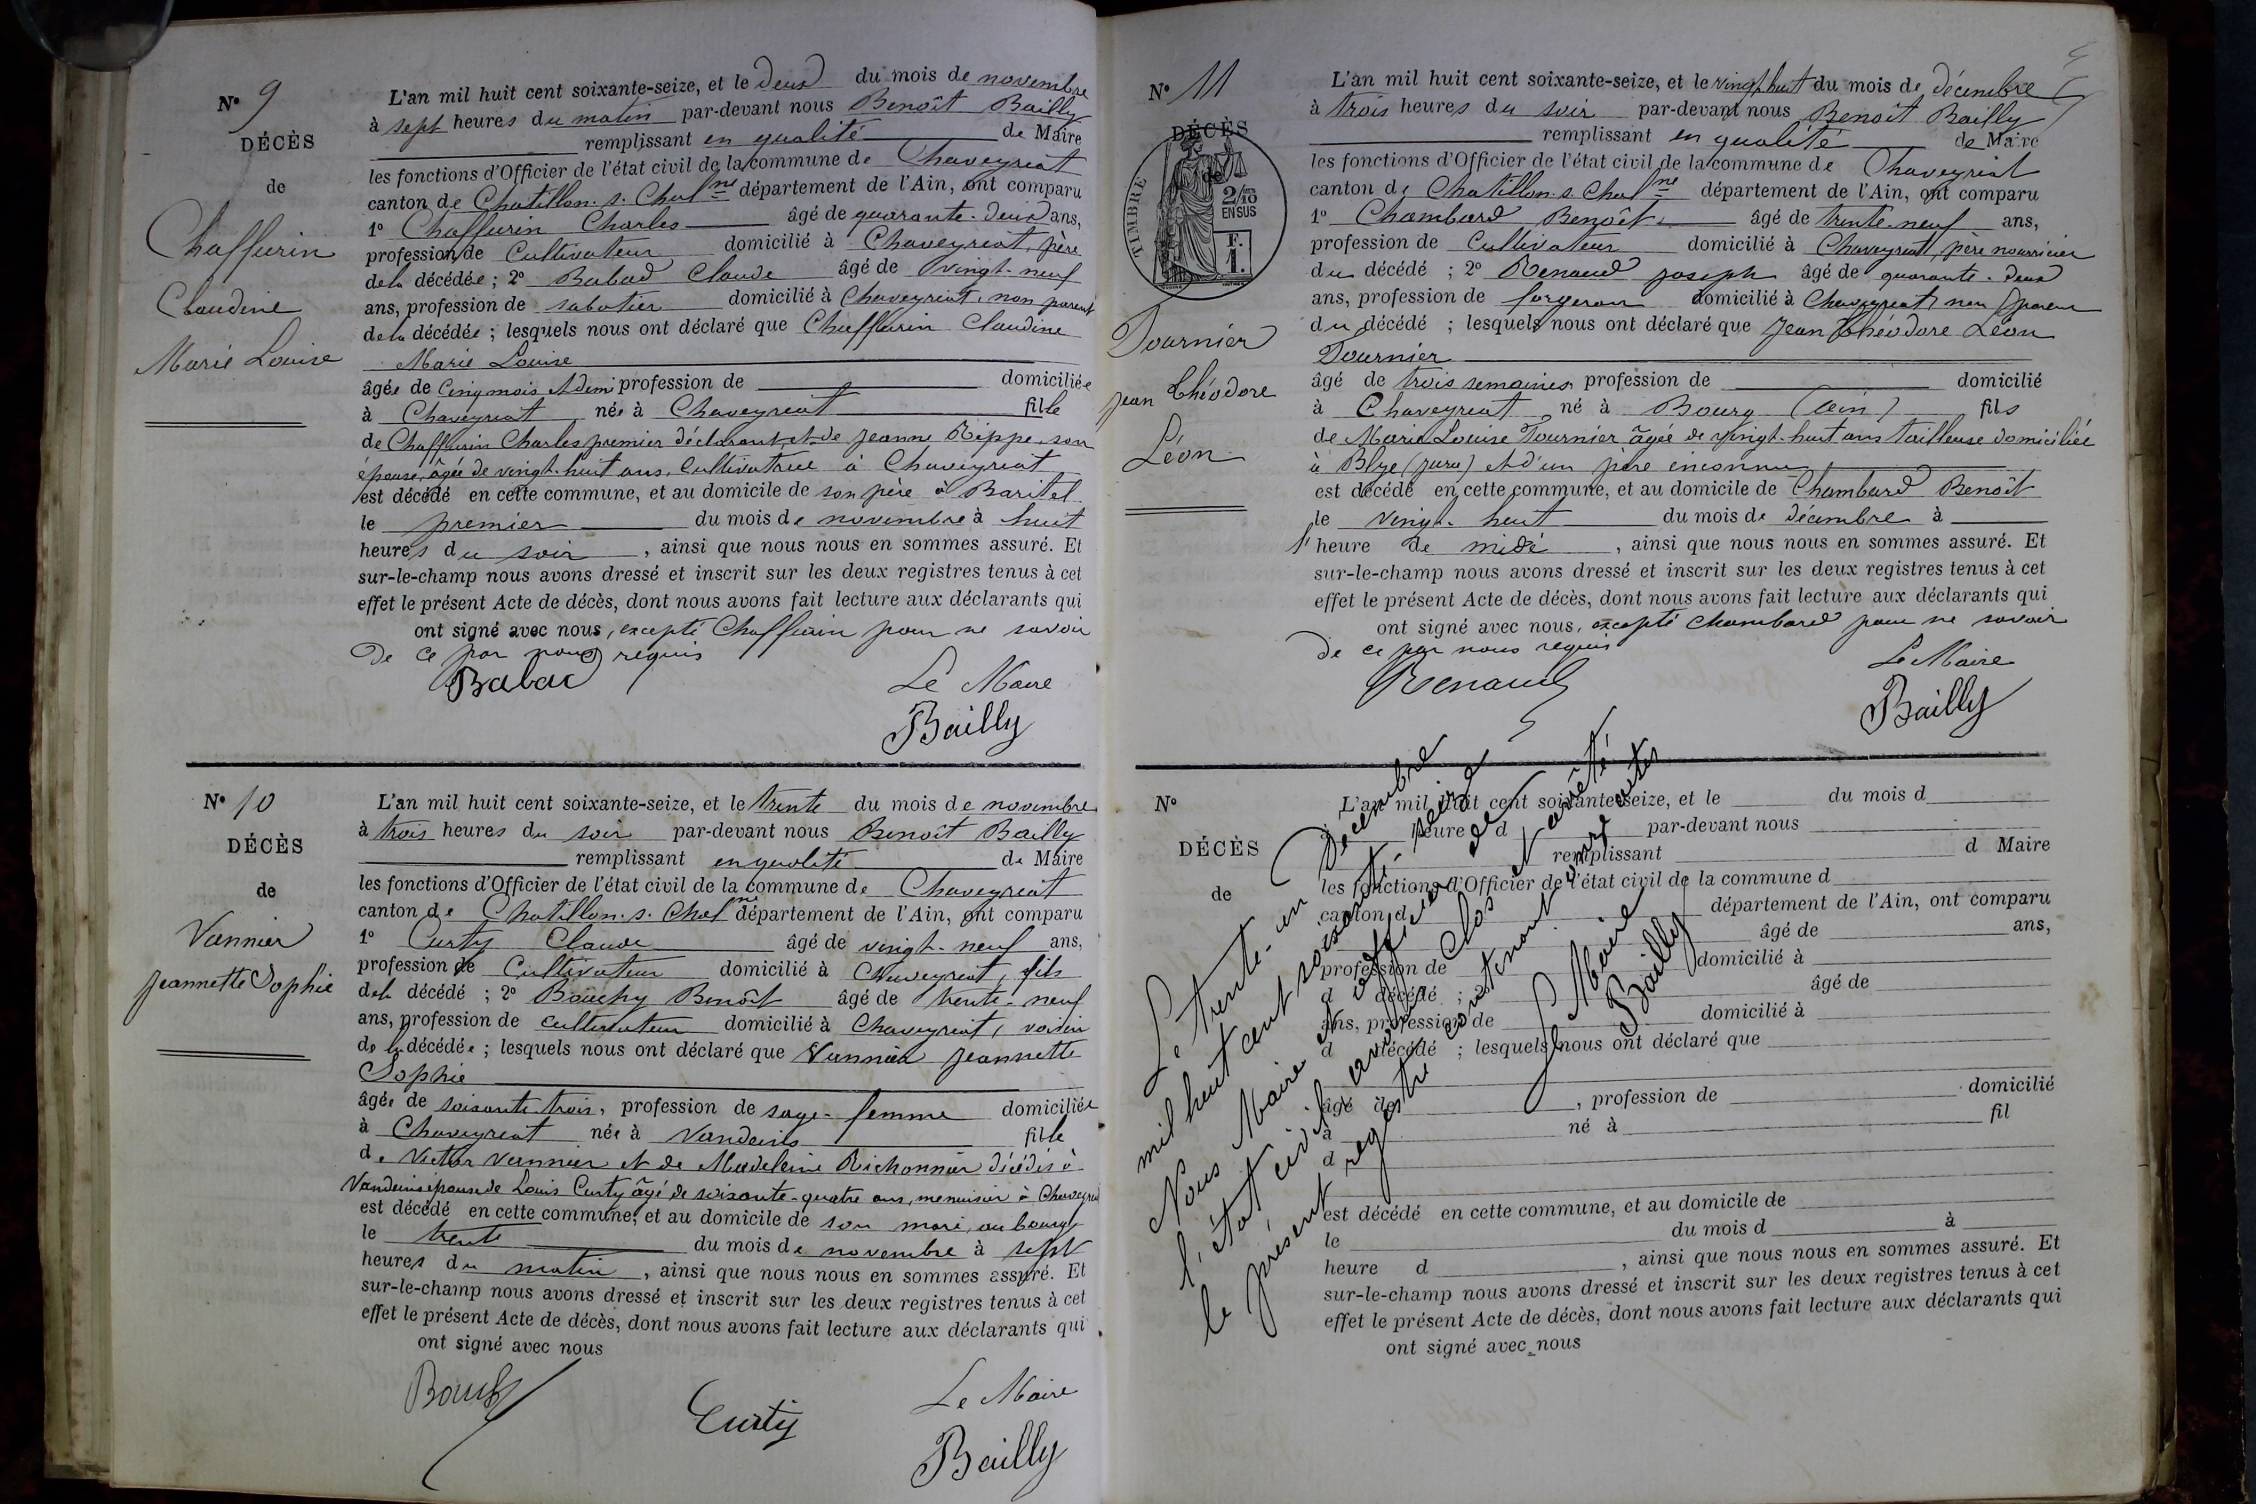 N° 9
DÉCÈS
de
Chaffurin
Claudine
Marie Louise
L'an mil huit cent soixante-seize, et le deux du mois de novembre
à sept heures du matin par-devant nous Benoît Bailly
remplissant en qualité de Maire
les fonctions d'Officier de l'état civil de la commune de Chaveyriat
canton de Chatillon. s. Chalne département de l'Ain, ont comparu
1° Chaffurin Charles âgé de quarante-deux ans,
profession de Cultivateur domicilié à Chaveyriat, père
de la décédée ; 2° Babad Claude âgé de vingt-neuf
ans, profession de sabotier domicilié à Chaveyriat, non parent
de la décédée ; lesquels nous ont déclaré que Chaffurin Claudine
Marie Louise
âgée de Cinq mois et demi profession de domiciliée
à Chaveyriat née à Chaveyriat fille
de Chaffurin Charles premier déclarant et de Jeanne Rippe, son
épouse, âgée de vingt-huit ans, Cultivatrice à Chaveyriat
est décédé en cette commune, et au domicile de son père à Baritel
le premier du mois de novembre à huit
heures du soir, ainsi que nous nous en sommes assuré. Et
sur-le-champ nous avons dressé et inscrit sur les deux registres tenus à cet
effet le présent Acte de décès, dont nous avons fait lecture aux déclarants qui
ont signé avec nous, excepté Chaffurin pour ne savoir
de ce par nous requis
Babad
Le Maire
Bailly
N° 10
DÉCÈS
de
Vannier
Jeannette Sophie
L'an mil huit cent soixante-seize, et le trente du mois de novembre
à trois heures du soir par-devant nous Benoît Bailly
remplissant en qualité de Maire
les fonctions d'Officier de l'état civil de la commune de Chaveyriat
canton de Chatillon. s. Chalne département de l'Ain, ont comparu
1° Curty Claude âgé de vingt-neuf ans,
profession de Cultivateur domicilié à Chaveyriat, fils
de la décédé ; 2° Bouchy Benoît âgé de trente-neuf
ans, profession de cultivateur domicilié à Chaveyriat, voisin
de la décédée ; lesquels nous ont déclaré que Vannier Jeannette
Sophie
âgée de soixante trois, profession de sage-femme domiciliée
à Chaveyriat née à Vandeins fille
de Victor Vannier et de Madeleine Richonnier décédés à
Vandeins épouse de Louis Curty âgé de soixante-quatre ans, menuisier à Chaveyriat
est décédé en cette commune, et au domicile de son mari, au bourg
le trente du mois de novembre à sept
heures du matin, ainsi que nous nous en sommes assuré. Et
sur-le-champ nous avons dressé et inscrit sur les deux registres tenus à cet
effet le présent Acte de décès, dont nous avons fait lecture aux déclarants qui
ont signé avec nous
Curty
Le Maire
Bailly
N° 11
DÉCÈS
de
TIMBRE
2/10
EN SUS
F.
1.
Tournier
Jean Théodore
Léon
L'an mil huit cent soixante-seize, et le vingt-huit du mois de décembre
à trois heures du soir par-devant nous Benoît Bailly
remplissant en qualité de Maire
les fonctions d'Officier de l'état civil de la commune de Chaveyriat
canton de Chatillon. s. Chalne département de l'Ain, ont comparu
1° Chambard Benoît âgé de trente-neuf ans,
profession de Cultivateur domicilié à Chaveyriat, père nourricier
du décédé ; 2° Renaud Joseph âgé de quarante-deux
ans, profession de forgeron domicilié à Chaveyriat, non parent
du décédé ; lesquels nous ont déclaré que Jean Théodore Léon
Tournier
âgé de trois semaines profession de domicilié
à Chaveyriat né à Bourg (Ain) fils
de Marie Louise Tournier âgée de vingt-huit ans tailleuse domiciliée
à Blye (Jura) et d'un père inconnu
est décédé en cette commune, et au domicile de Chambard Benoît
le vingt-huit du mois de décembre à
l'heure de midi, ainsi que nous nous en sommes assuré. Et
sur-le-champ nous avons dressé et inscrit sur les deux registres tenus à cet
effet le présent Acte de décès, dont nous avons fait lecture aux déclarants qui
ont signé avec nous, excepté Chambard pour ne savoir
de ce par nous requis
Renaud
Le Maire
Bailly
N°
DÉCÈS
de
L'an mil huit cent soixante-seize, et le du mois d
à heure d par-devant nous
remplissant d Maire
les fonctions d'Officier de l'état civil de la commune d
canton d département de l'Ain, ont comparu
1° âgé de ans,
profession de domicilié à
d décédé ; 2° âgé de
ans, profession de domicilié à
d décédé ; lesquels nous ont déclaré que
âgé de , profession de domicilié
à né à fil
d
est décédé en cette commune, et au domicile de
le du mois d à
heure d , ainsi que nous nous en sommes assuré. Et
sur-le-champ nous avons dressé et inscrit sur les deux registres tenus à cet
effet le présent Acte de décès, dont nous avons fait lecture aux déclarants qui
ont signé avec nous
Le trente-un Décembre
mil huit cent soixante seize
Nous Maire et officier de
l'état civil, avons clos et arrêté
le présent registre contenant onze actes
Le Maire
Bailly